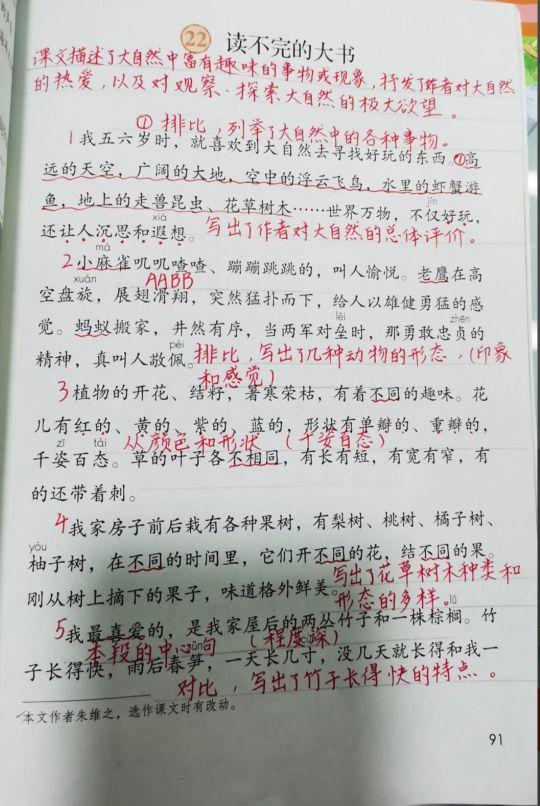 22 读不完的大书
课文描述了大自然中富有趣味的事物或现象，抒发了作者对大自然
的热爱，以及对观察·探索大自然的极大欲望。
① 排比，列举了大自然中的各种事物。
1我五六岁时，就喜欢到大自然去寻找好玩的东西。①高
远的天空，广阔的大地，空中的浮云飞鸟，水里的虾蟹游
jǐn
鱼，地上的走兽昆虫、花草树木……世界万物，不仅好玩，
xiá
还让人沉思和遐想。写出了作者对大自然的总体评价。
má
2小麻雀叽叽喳喳、蹦蹦跳跳的，叫人愉悦。老鹰在高
xuán AABB
空盘旋，展翅滑翔，突然猛扑而下，给人以雄健勇猛的感
lěi zhēn
觉。蚂蚁搬家，井然有序，当两军对垒时，那勇敢忠贞的
pèi
精神，真叫人敬佩。排比，写出了几种动物的形态，(印象
和感觉)
3植物的开花、结籽，暑寒荣枯，有着不同的趣味。花
儿有红的、黄的、紫的、蓝的，形状有单瓣的、重瓣的，
zī tài 从颜色和形状 (千姿百态)
千姿百态。草的叶子各不相同，有长有短，有宽有窄，有
的还带着刺。
4我家房子前后栽有各种果树，有梨树、桃树、橘子树、
yòu
柚子树，在不同的时间里，它们开不同的花，结不同的果。
刚从树上摘下的果子，味道格外鲜美。写出了花草树木种类和
形态的多样。
lǘ
5我最喜爱的，是我家屋后的两丛竹子和一株棕榈。竹
本段的中心句 (程度深)
sǔn
子长得快，雨后春笋，一天长几寸，没几天就长得和我一
对比，写出了竹子长得快的特点。
本文作者朱维之，选作课文时有改动。
91